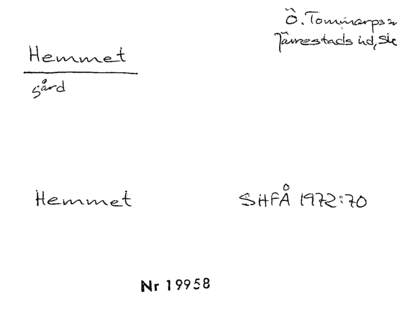 Ö. Tommarps sn
Järrestads hd, Sk
Hemmet
gård
Hemmet SHFÅ 1972:70
Nr 19958